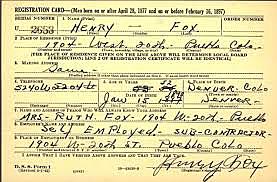 REGISTRATION CARD—(Men born on or after April 28, 1877 and on or before February 16, 1897)
SERIAL NUMBER
1. NAME (Print)
ORDER NUMBER
U 2553
HENRY — FOX
2. PLACE OF RESIDENCE (Print)
1904 West 20th Pueblo Colo
[THE PLACE OF RESIDENCE GIVEN ON THE LINE ABOVE WILL DETERMINE LOCAL BOARD
JURISDICTION; LINE 2 OF REGISTRATION CERTIFICATE WILL BE IDENTICAL]
3. MAILING ADDRESS
Same
4. TELEPHONE
DENVER COLO
Jan 15
DENVER
7. NAME AND ADDRESS OF PERSON WHO WILL ALWAYS KNOW YOUR ADDRESS
MRS- RUTH FOX- 1904 W- 20th- Pueblo
8. EMPLOYER'S NAME AND ADDRESS
SELF EMPLOYED - SUB-CONTRACTOR-
9. PLACE OF EMPLOYMENT OR BUSINESS
1904 W- 20th ST. Pueblo Colo
I AFFIRM THAT I HAVE VERIFIED ABOVE ANSWERS AND THAT THEY ARE TRUE.
D. S. S. Form 1
Henry Fox